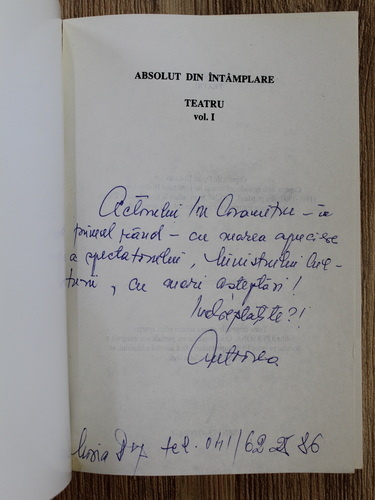 ABSOLUT DIN ÎNTÂMPLARE
TEATRU
vol. I
Actorului Ion Caramitru – în
primul rând – cu marea apreciere
a spectatorului, Ministrului Cul-
turii, cu mari așteptări!
Îndreptățite?!
Autoarea
tel. 041/62 25 86